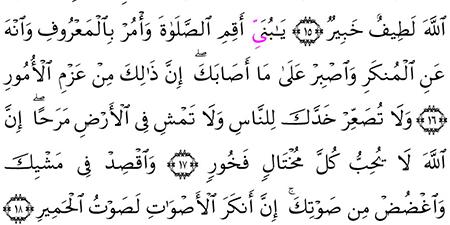 اَ۬للَّهَ لَطِيفٌ خَبِيرٌ ١٥ يَٰبُنَيِّ أَقِمِ اِ۬لصَّلَوٰةَ وَأْمُرْ بِالْمَعْرُوفِ وَانْهَ
عَنِ اِ۬لْمُنكَرِ وَاصْبِرْ عَلَىٰ مَا أَصَابَكَ ۖ إِنَّ ذَٰلِكَ مِنْ عَزْمِ اِ۬لْأُمُورِ
١٦ وَلَا تُصَعِّرْ خَدَّكَ لِلنَّاسِ وَلَا تَمْشِ فِى اِ۬لْأَرْضِ مَرَحًا ۖ إِنَّ
اَ۬للَّهَ لَا يُحِبُّ كُلَّ مُخْتَالٍ فَخُورٍ ١٧ وَاقْصِدْ فِى مَشْيِكَ
وَاغْضُضْ مِن صَوْتِكَ ۚ إِنَّ أَنكَرَ اَ۬لْأَصْوَٰتِ لَصَوْتُ اُ۬لْحَمِيرِ ١٨